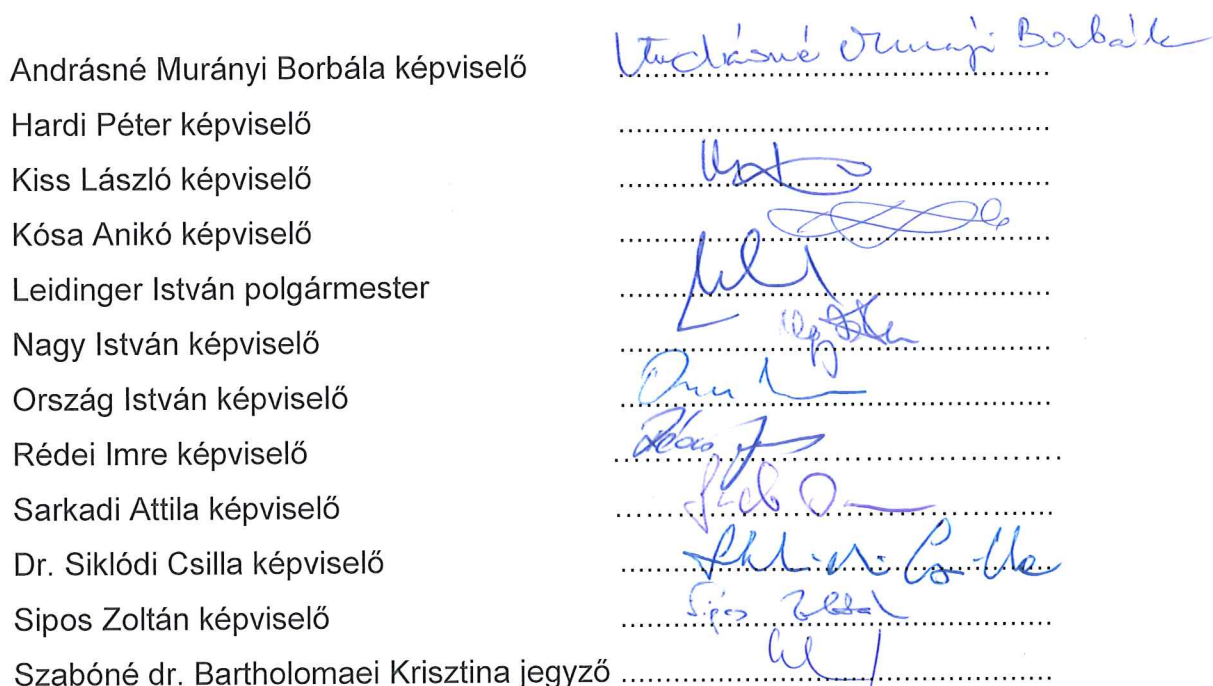 Andrásné Murányi Borbála képviselő Andrásné Murányi Borbála
Hardi Péter képviselő
Kiss László képviselő
Kósa Anikó képviselő
Leidinger István polgármester
Nagy István képviselő
Ország István képviselő
Rédei Imre képviselő
Sarkadi Attila képviselő
Dr. Siklódi Csilla képviselő
Sipos Zoltán képviselő Sipos Zoltán
Szabóné dr. Bartholomaei Krisztina jegyző